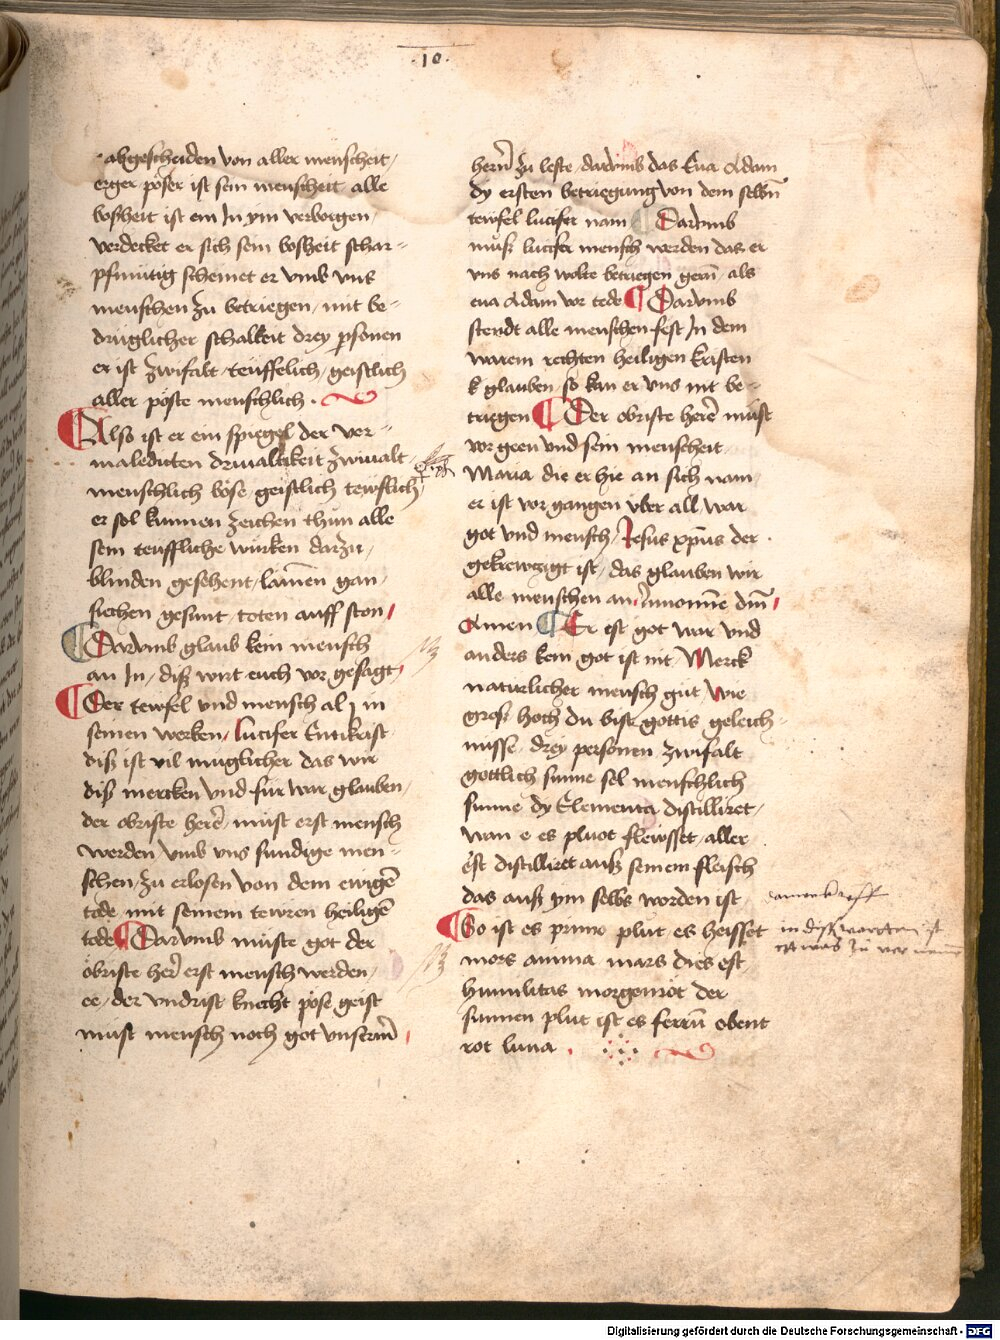 ·10·
abgescheiden von aller menscheit /
erger poser ist sein menscheit alle
bosheit ist ein In ym verborgen /
verdecket er sich sein bosheit schar-
pfmütig scheinet er vmb vns
menschen zu betriegen / mit be-
drüglicher schalkeit drey psonen
er ist zwifalt / teüffelich / geistlich
aller poste menschlich ·
Also ist er ein spiegel der ver-
maledicten driualtikeit zwiualt
menschlich bose / geistlich tewflich /
er sol kunnen zeichen thun alle
sein teuffliche würken darzu /
blinden gesehent / lamen gan /
siechen gesunt / toten auff ston /
Darvmb glaub kein mensch
an In / diß wirt euch vor gesagt /
Der tewfel vnd mensch al j in
seinen werken / Lucifer Entikrist
diß ist vil muglicher das wir
diß mercken vnd für war glauben /
der obriste here / must erst mensch
werden vmb vns sundige men-
schen / zu erlosen von dem ewigē
tode mit seinem tewren heiligē
tode Darvmb müste got der
obriste her erst mensch werden /
ee / der vndrist knecht pose geist
must mensch noch got vnserm
hern zu leste / darvmb das Eua Adam
dy ersten betriegung von dem selbn
tewfel lucifer nam Darvmb
muß lucifer mensch werden das er
vns nach wolte betriegen gern als
eua Adam vor tede Darvmb
stendt alle menschen fest In dem
warem rechten heiligen kristen
glauben / so kan er vns nit be-
triegen Der obriste here müst
vor geen vnd sein menscheit
Maria die er hie an sich nam
er ist vor gangen vber all / war
got vnd mensch / Jesus xpūs der
gekrewzigt ist / das glauben wir
alle menschen an / Innomīe dm̄ /
Amen Er ist got war vnd
anders kein got ist nit / Merck
naturlicher mensch güt / wie
groß hoch du bist gottis geleich-
nusse / drey personen zwifalt
gottlich sunne sel menschlich
sunne dy Elementa distilliret /
wan e es pluot fleisset / aller
est distilliret auß seinem fleisch
das auß ym selbs worden ist
So ist es primo plut / es heisset
mors anima mars dies est
humilitas morgenrot der
sunnen plut ist es ferrū obent
rot luna ·
in diß worten ist
etwas zu ver